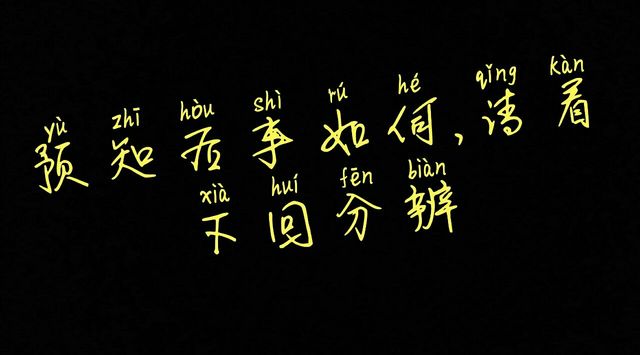 yù zhī hòu shì rú hé qǐng kàn
预知后事如何,请看
xià huí fēn biàn
下回分辨